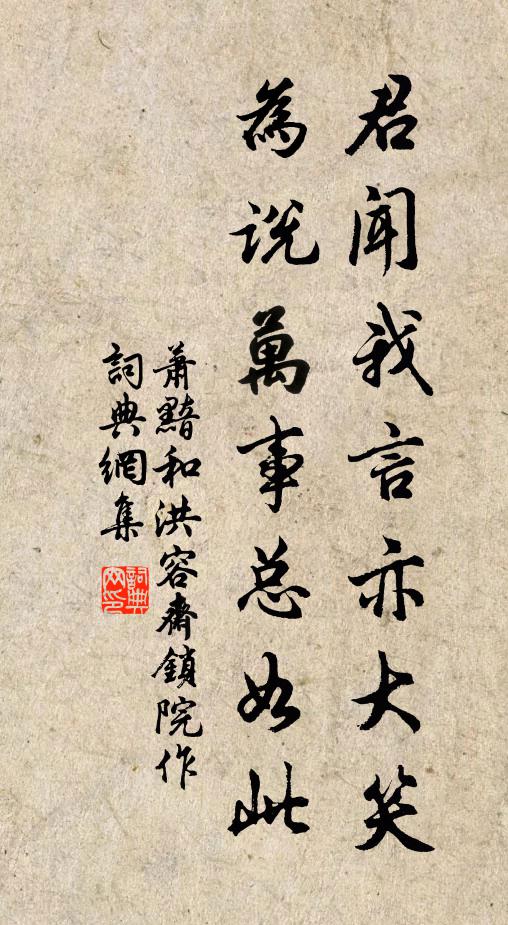 君闻我言亦大笑
為説萬事总如此
蕭黯和洪容齋鎖院作
詞典網集
詞典網印